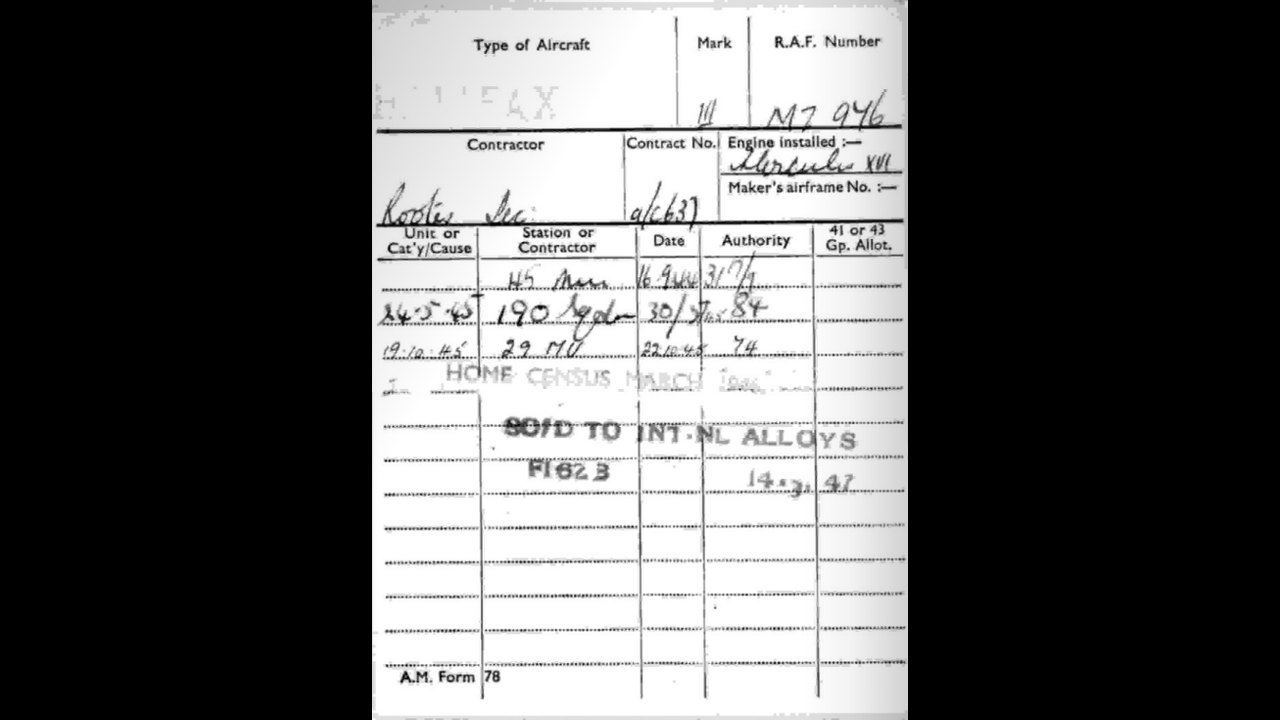 Type of Aircraft Mark R.A.F. Number
HALIFAX III MZ 976
Contractor Contract No. Engine installed :—
Hercules XVI
Maker's airframe No. :—
Rootes Sec: a/c637
Unit or Cat'y/Cause Station or Contractor Date Authority 41 or 43 Gp. Allot.
45 16.9.44 317/1
24.5.45 190 Sqdn 30/5 84
19.10.45 29 MU 22.10.45 74
HOME CENSUS MARCH 1946
SOLD TO INT.NL ALLOYS
F1623 14. 47
A.M. Form 78